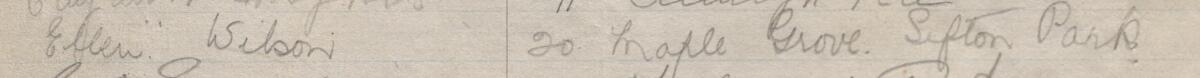 Ellen Wilson 20 Maple Grove. Sefton Park